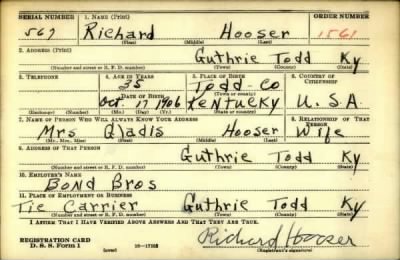 SERIAL NUMBER 1. NAME (Print) ORDER NUMBER
567 Richard Hooser 1561
(First) (Middle) (Last)
2. ADDRESS (Print)
Guthrie Todd Ky
(Number and street or R. F. D. number) (Town) (County) (State)
3. TELEPHONE 4. AGE IN YEARS 5. PLACE OF BIRTH 6. COUNTRY OF CITIZENSHIP
35 Todd Co
DATE OF BIRTH (Town or county)
Oct. 17 1906 Kentucky U.S.A
(Exchange) (Number) (Mo.) (Day) (Yr.) (State or country)
7. NAME OF PERSON WHO WILL ALWAYS KNOW YOUR ADDRESS 8. RELATIONSHIP OF THAT PERSON
Mrs Gladis Hooser Wife
(Mr., Mrs., Miss) (First) (Middle) (Last)
9. ADDRESS OF THAT PERSON
Guthrie Todd Ky
(Number and street or R. F. D. number) (Town) (County) (State)
10. EMPLOYER'S NAME
Bond Bros
11. PLACE OF EMPLOYMENT OR BUSINESS
Tie Carrier Guthrie Todd Ky
(Number and street or R. F. D. number) (Town) (County) (State)
I AFFIRM THAT I HAVE VERIFIED ABOVE ANSWERS AND THAT THEY ARE TRUE.
REGISTRATION CARD
D. S. S. Form 1 (over) Richard Hooser
(Registrant's signature)